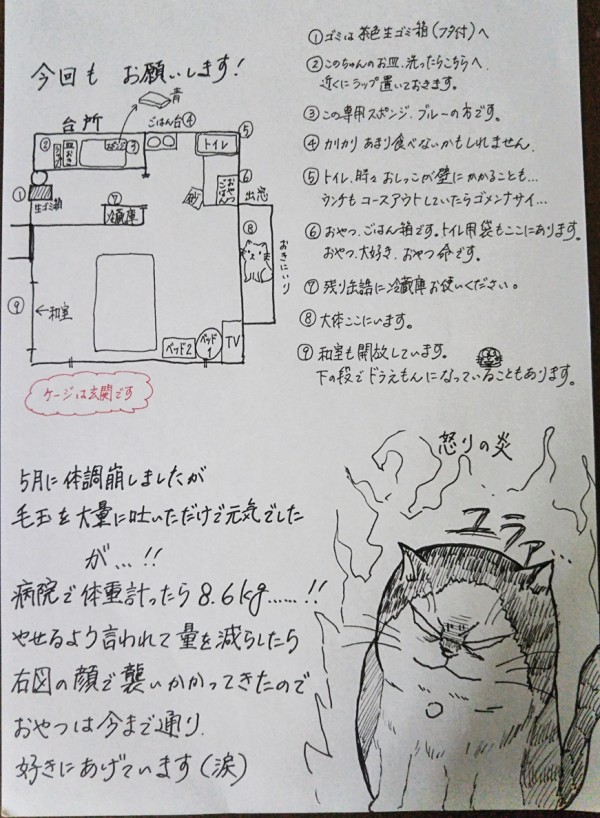 今回も お願いします!
青
台所
ごはん台④
トイレ
⑤
②
水切り
③
①
生ゴミ箱
⑦
冷蔵庫
砂
おやつごはん
⑥
出窓
⑧
おきにいり
⑨
←和室
ベッド2
ベッド1
TV
ケージは玄関です
①ゴミは茶色生ゴミ箱(フタ付)へ
②このちゃんのお皿、洗ったらこちらへ
近くにラップ置いておきます。
③この専用スポンジ、ブルーの方です。
④カリカリ あまり食べないかもしれません
⑤トイレ、時々おしっこが壁にかかることも…
ウンチもコースアウトしていたらゴメンナサイ…
⑥おやつ、ごはん箱です。トイレ用袋もここにあります。
おやつ、大好き、おやつ命です。
⑦残り缶詰に冷蔵庫お使いください。
⑧大体ここにいます。
⑨和室も開放しています。
下の段でドラえもんになっていることもあります。
5月に体調崩しましたが
毛玉を大量に吐いただけで元気でした
が…!!
病院で体重計ったら8.6kg……!!
やせるよう言われて量を減らしたら
右図の顔で襲いかかってきたので
おやつは今まで通り、
好きにあげています(涙)
怒りの炎
ユラァ…